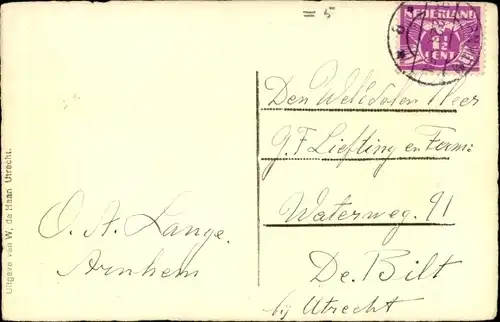 = 5
NEDERLAND
2½
CENT
Den WelEdelen Heer
G. F. Liefting en Fam:
Waterweg. 91
De. Bilt
bij Utrecht
O. A. Lange.
Arnhem
Uitgave van W. de Haan, Utrecht.